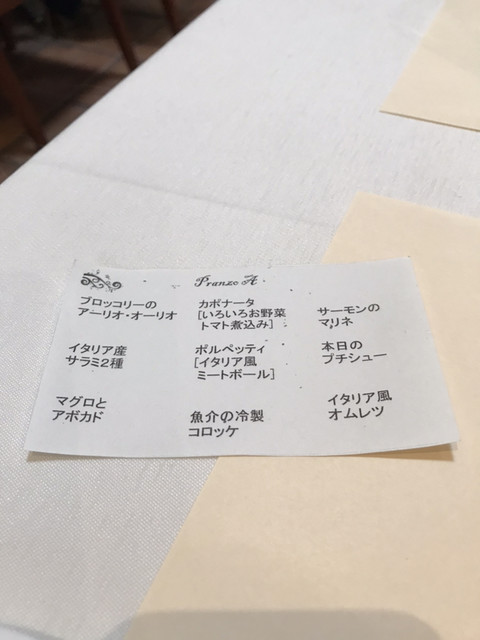 Pranzo A
ブロッコリーの
アーリオ・オーリオ
カポナータ
[いろいろお野菜
トマト煮込み]
サーモンの
マリネ
イタリア産
サラミ2種
ポルペッティ
[イタリア風
ミートボール]
本日の
プチシュー
マグロと
アボカド
魚介の冷製
コロッケ
イタリア風
オムレツ